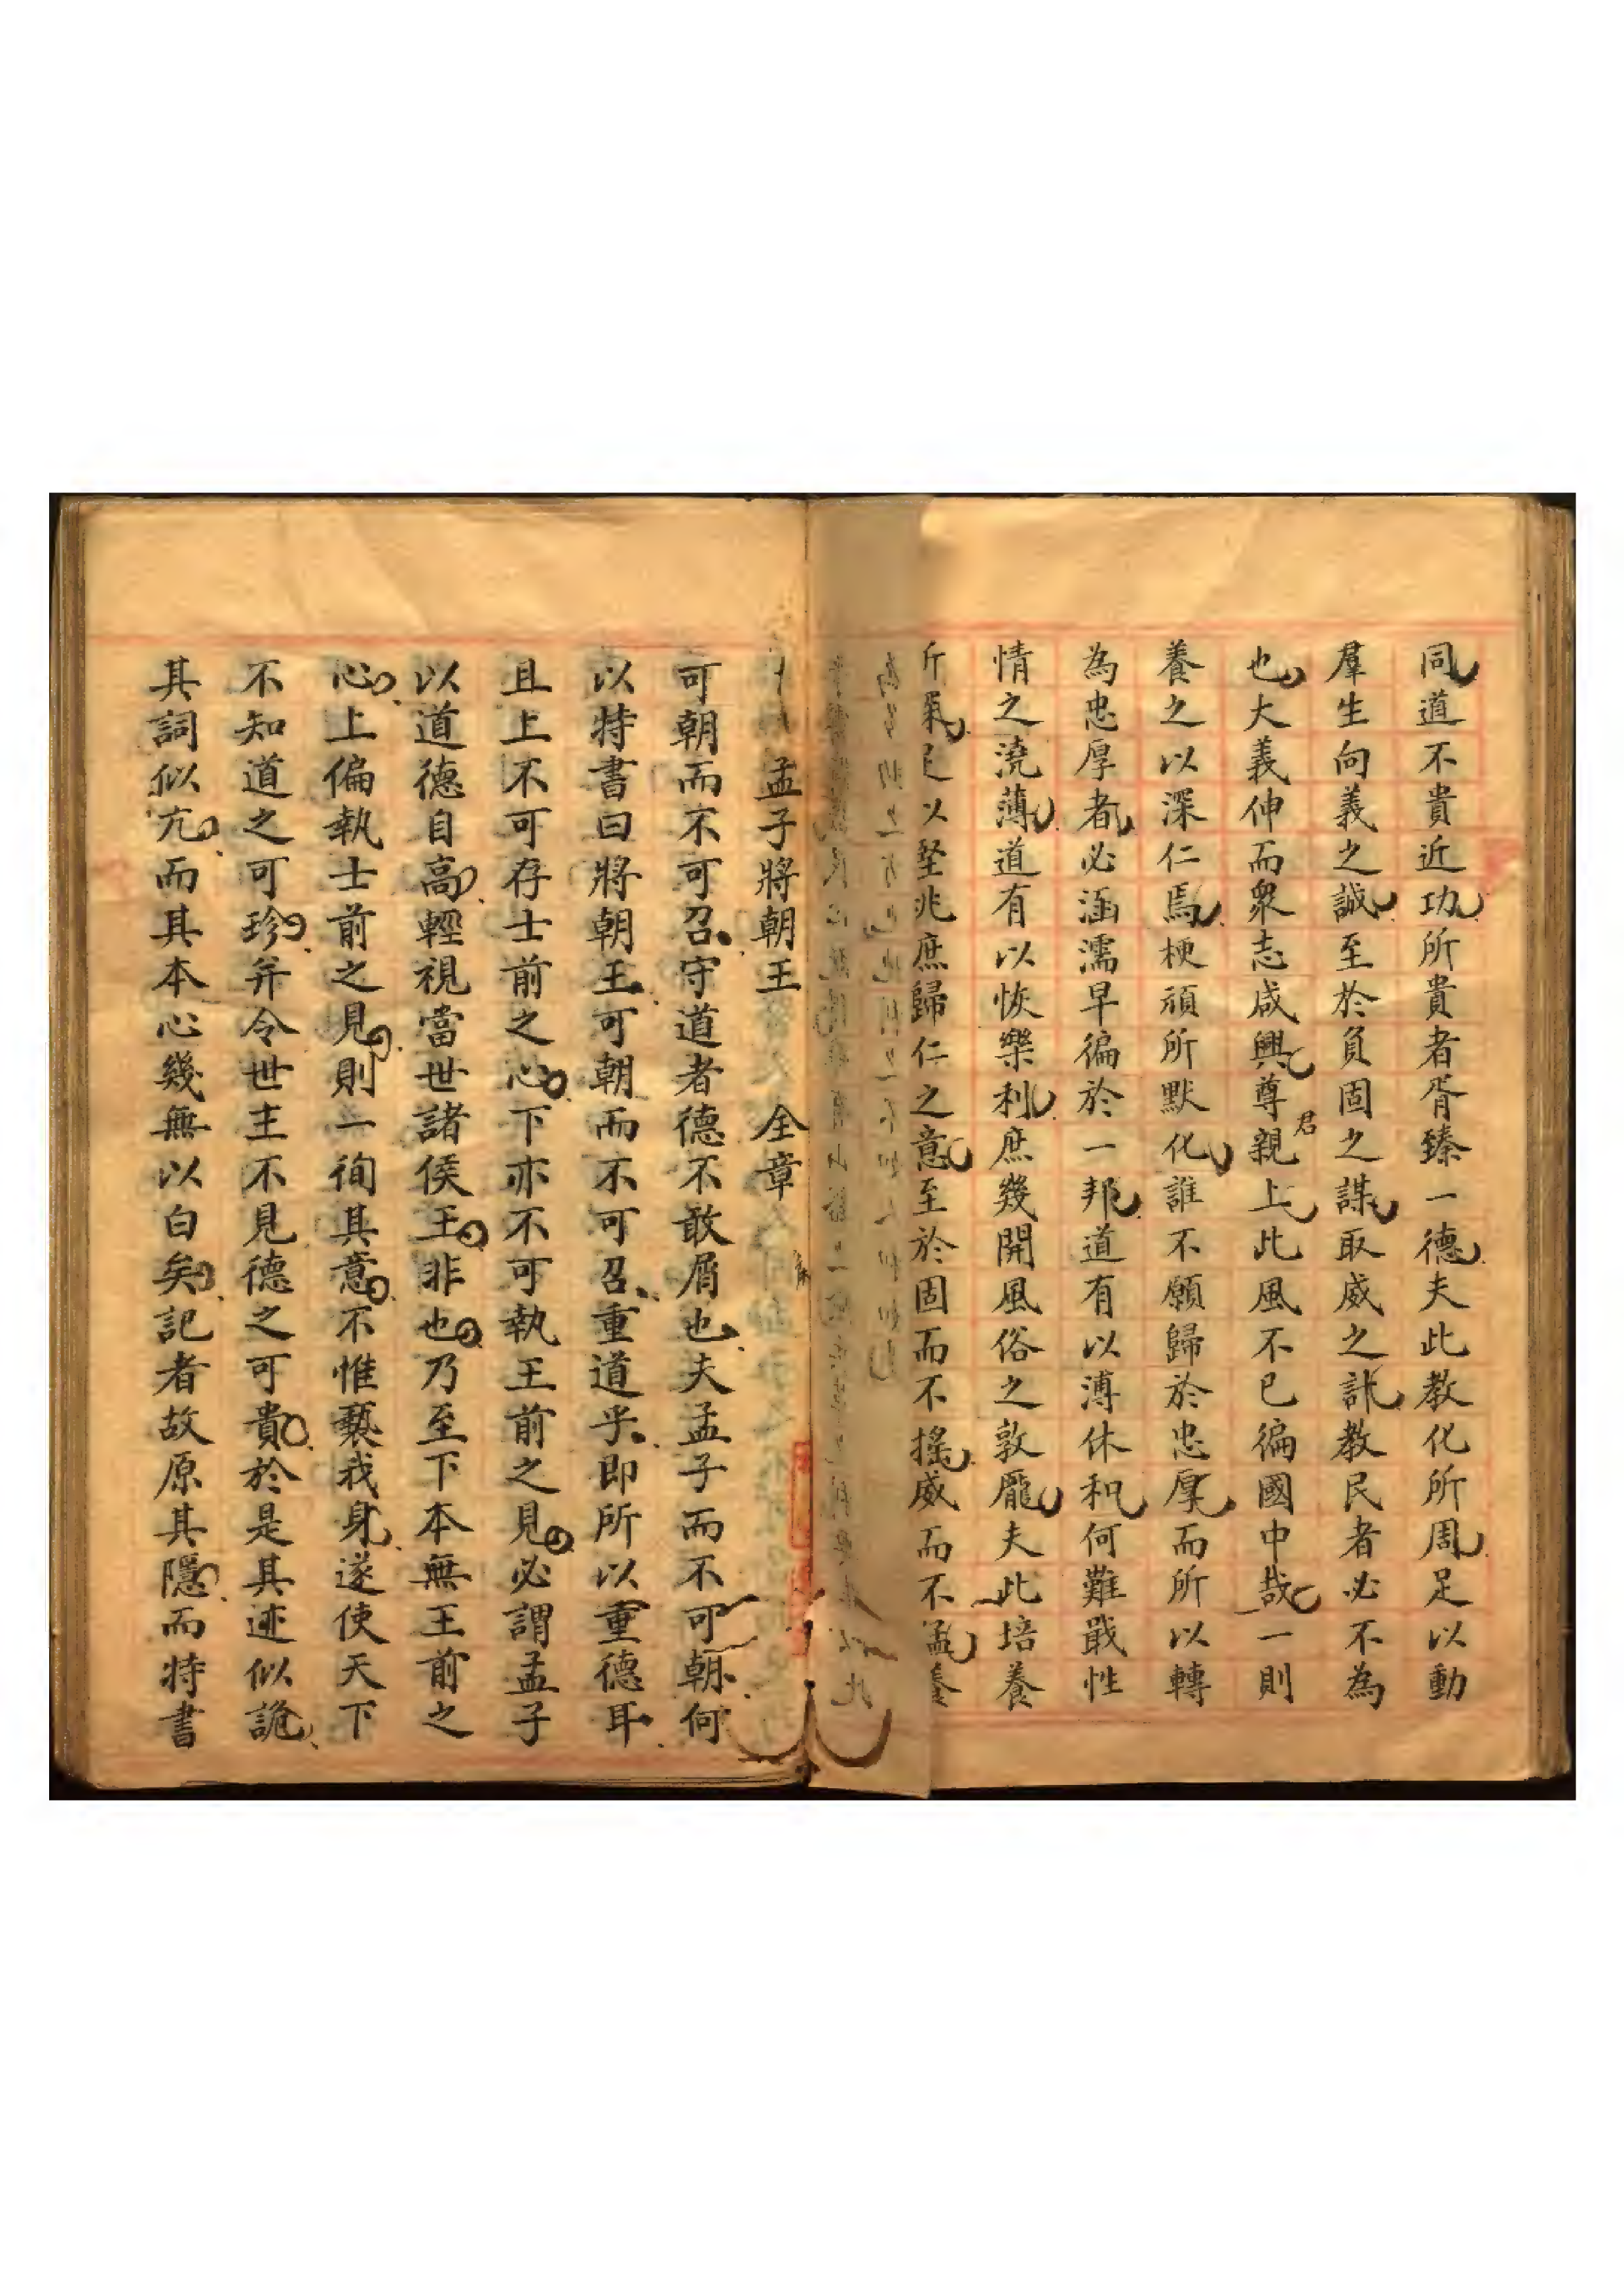 同道不貴近功所貴者胥臻一德夫此教化所周足以動
羣生向義之誠至於負固之謀取威之訛教民者必不為
也大義伸而衆志咸興尊君親上此風不已徧國中哉一則
養之以深仁焉梗頑所默化誰不願歸於忠厚而所以轉
為忠厚者必涵濡早徧於一邦道有以溥休和何難戢性
情之澆薄道有以恢樂利庶幾開風俗之敦龐夫此培養
所氣足以堅兆庶歸仁之意至於固而不搖威而不猛養
孟子將朝王 全章
可朝而不可召守道者德不敢屑也夫孟子而不可朝何
以特書曰將朝王可朝而不可召重道乎即所以重德耳
且上不可存士前之心下亦不可執王前之見必謂孟子
以道德自高輕視當世諸侯王非也乃至下本無王前之
心上偏執士前之見則一徇其意不惟褻我身遂使天下
不知道之可珍并令世主不見德之可貴於是其迹似詭
其詞似亢而其本心幾無以白矣記者故原其隱而特書